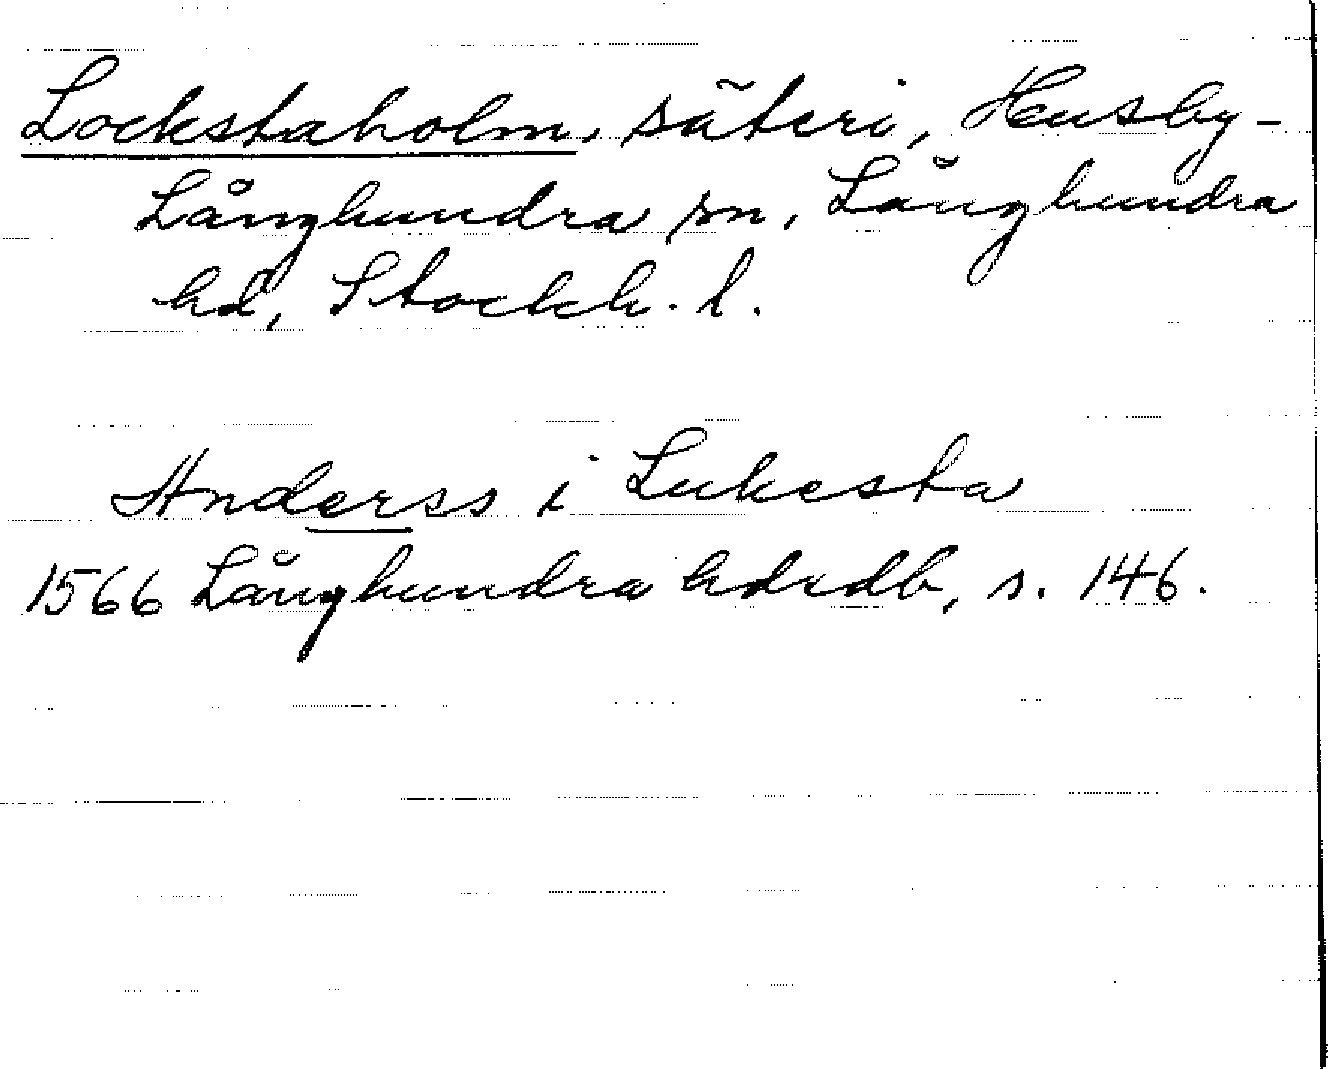 Lockstaholm, säteri, Husby-
Långhundra sn, Långhundra
hd, Stockh. l.
Anderss i Lukesta
1566 Långhundra hdrdb, s. 146.